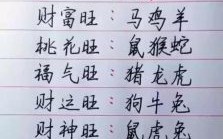 财富旺：马鸡羊
桃花旺：鼠猴蛇
福气旺：猪龙虎
财运旺：狗牛兔
财神旺：鼠虎兔